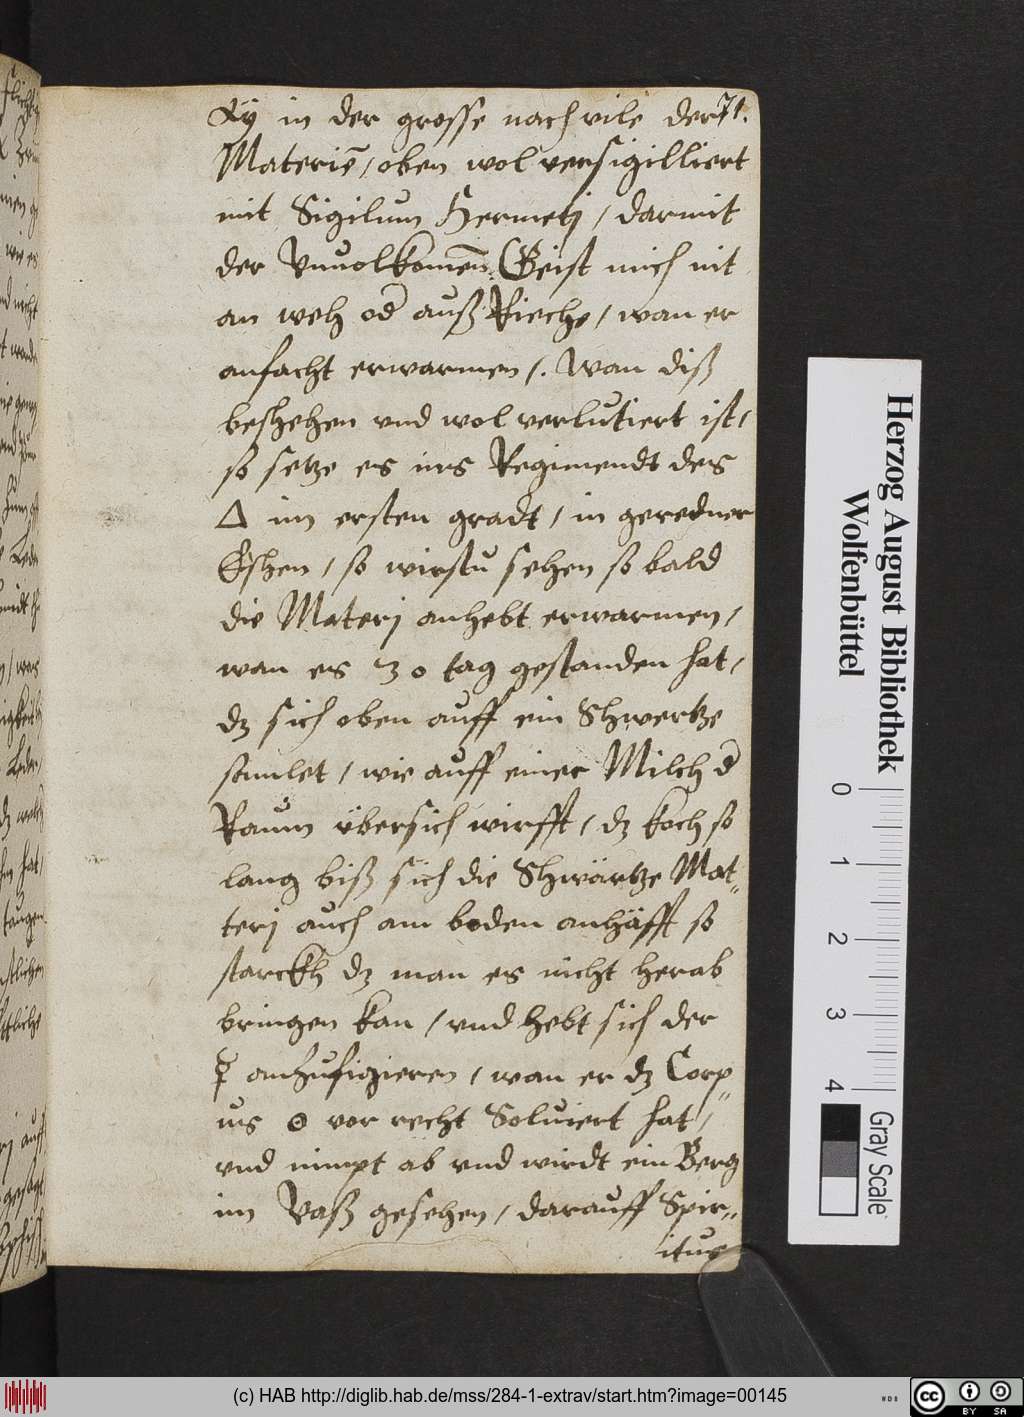 Ey in der grosse nach vile der 71.
Materiē / oben wol versigilliert
mit Sigilum Hermetj / darmit
der Vnuolkomen̄ Geist mich nit
an weh od auß Rieche / wan er
anfacht erwarmen /. Wan diß
beshehen vnd wol verlutiert ist /
so setze es ins Regimendt des
△ im ersten gradt / in geredner
Eshen / so wirstu sehen so bald
die Materj anhebt erwarmen /
wan es 30 tag gestanden hat /
dz sich oben auff ein Shwertze
samlet / wie auff einer Milch d
Raum übersich wirfft / dz koch so
lang biß sich die Shwärtze Mat„
terj auch am boden anhäfft so
starckh dz man es nicht herab
bringen kan / vnd hebt sich der
☿ anzufigieren / wan er dz Corp„
us ☉ vor recht Soluiert hat /
vnd nimpt ab vnd wirdt ein Berg
im Vaß gesehen / darauff Spir„
itus
Herzog August Bibliothek
Wolfenbüttel
0 1 2 3 4
Gray Scale
(c) HAB http://diglib.hab.de/mss/284-1-extrav/start.htm?image=00145
WDB
cc BY SA